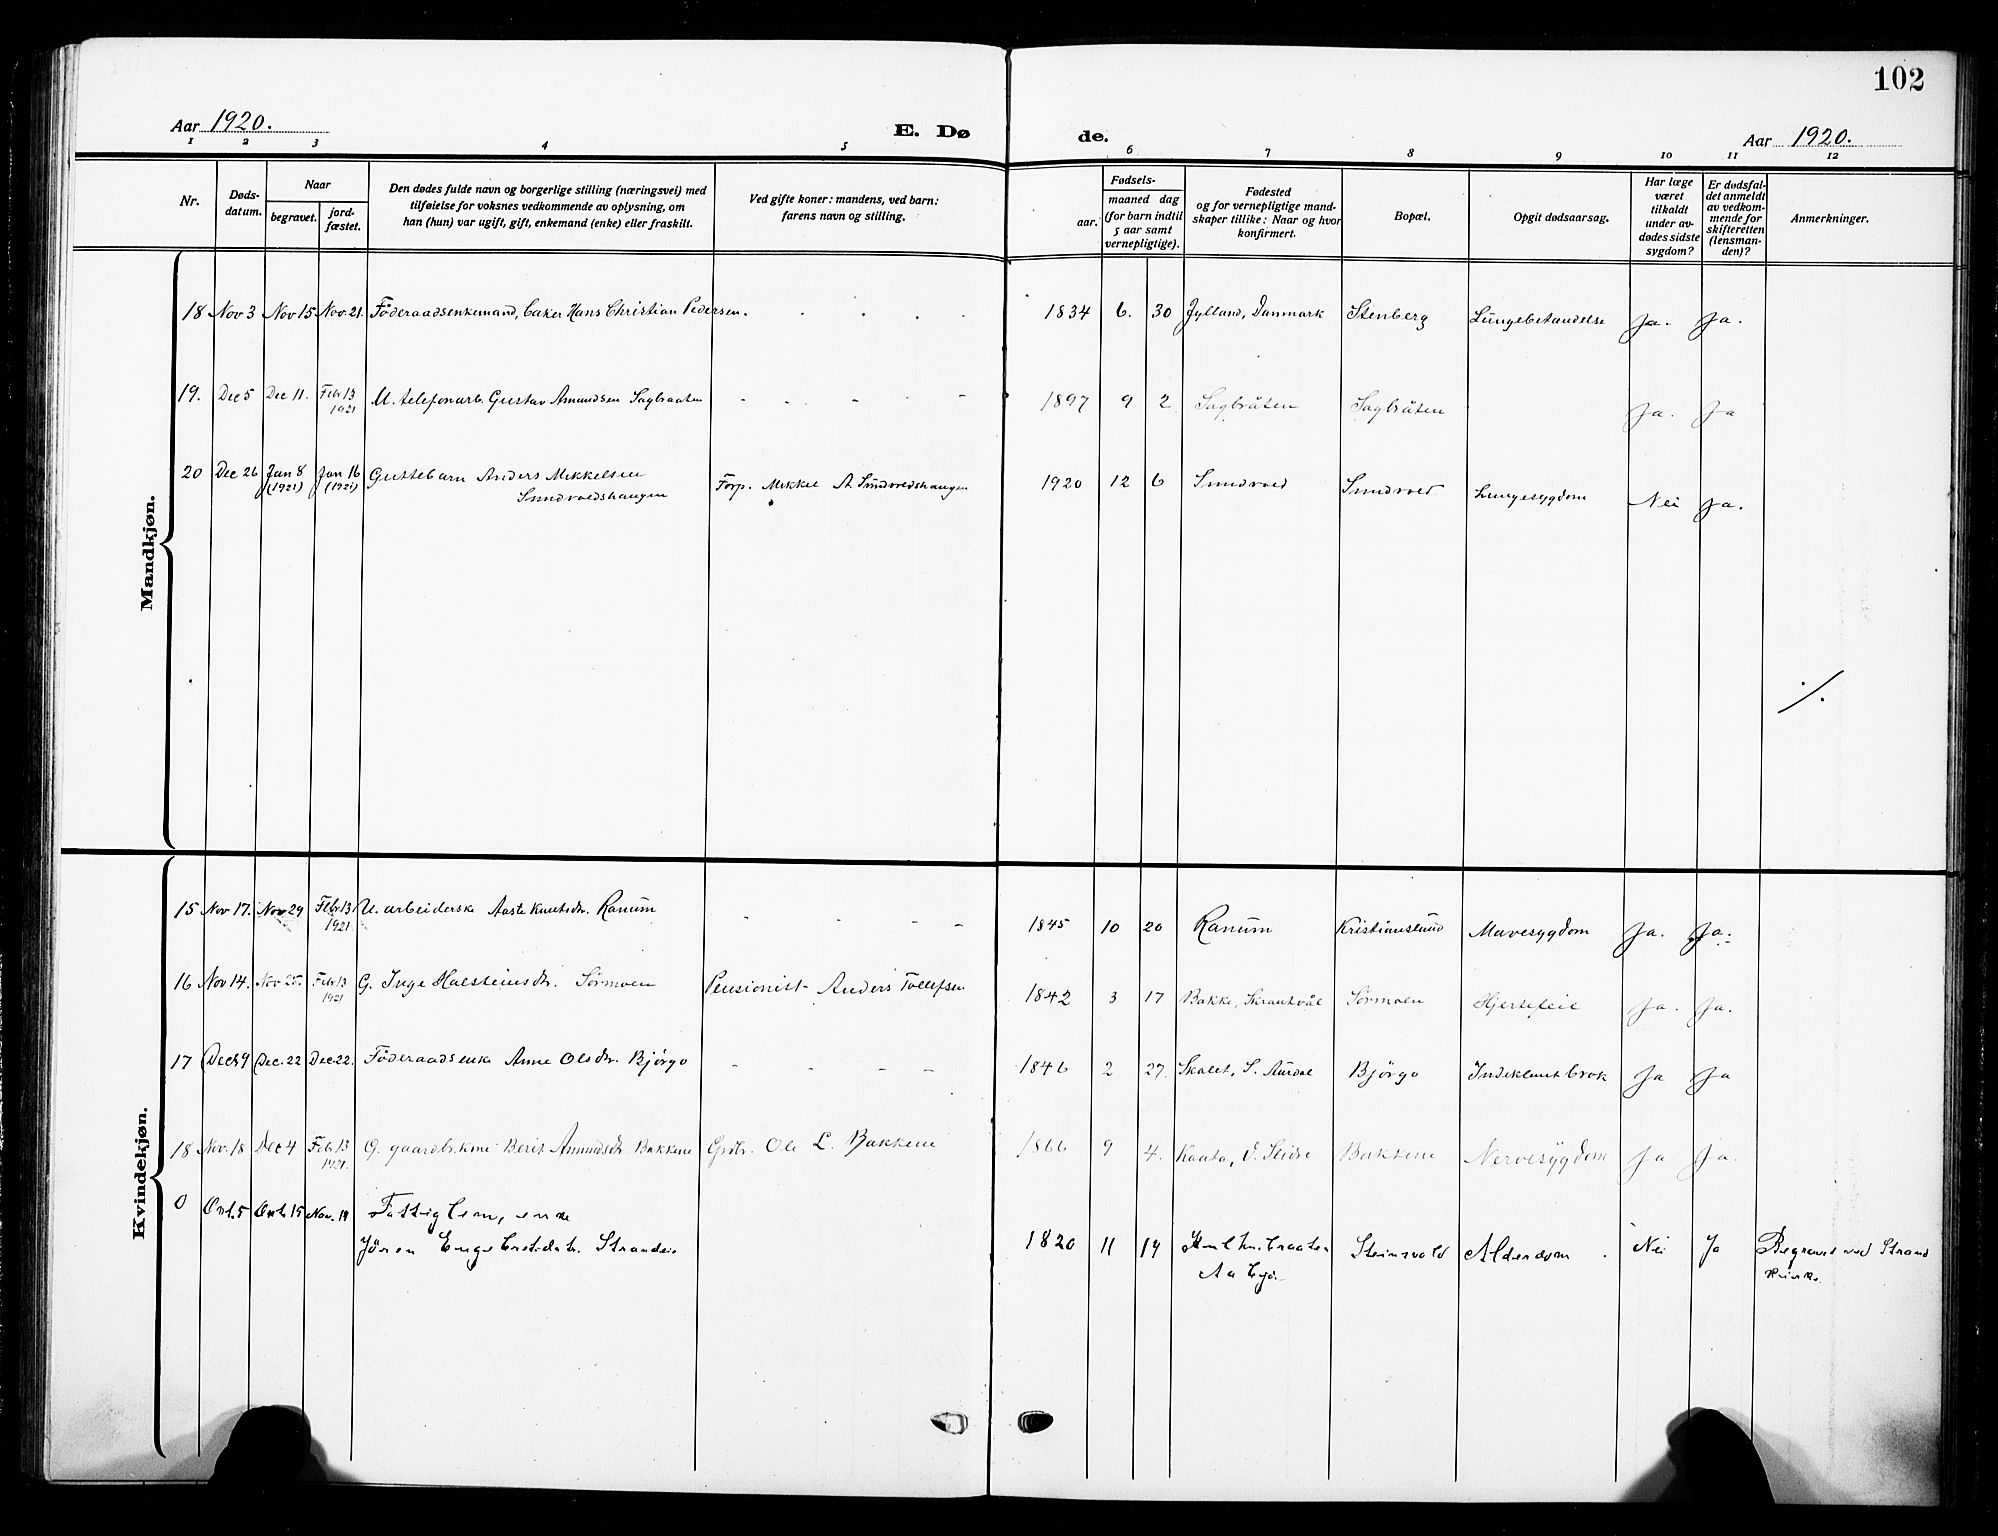 102
Aar 1920. E. Dø de. Aar 1920.
1 2 3 4 5 6 7 8 9 10 11 12
Nr.
Døds-
datum.
Naar
begravet.
jord-
fæstet.
Den dødes fulde navn og borgerlige stilling (næringsvei) med
tilføielse for voksnes vedkommende av oplysning, om
han (hun) var ugift, gift, enkemand (enke) eller fraskilt.
Ved gifte koner: mandens, ved barn:
farens navn og stilling.
Fødsels-
aar.
maaned dag
(for barn indtil
5 aar samt
vernepligtige).
Fødested
og for vernepligtige mand-
skaper tillike: Naar og hvor
konfirmert.
Bopæl.
Opgit dødsaarsag.
Har læge
været
tilkaldt
under av-
dødes sidste
sygdom?
Er dødsfal-
det anmeldt
av vedkom-
mende for
skifteretten
(lensman-
den)?
Anmerkninger.
Mandkjøn.
18 Nov 3 Nov 15 Nov. 21. Föderaadsenkemand, baker Hans Christian Pedersen. 1834 6. 30 Jylland, Danmark Stenberg Lungebetændelse Ja. Ja.
19. Dec 5 Dec 11. Febr 13 U. telefonarb. Gustav Amundsen Sagbraaten - - - - - 1897 9 2 Sagbråten Sagbråten Ja. Ja
1921
20 Dec 26 Jan 8 Jan 16 Guttebarn Anders Mikkelsen Forp. Mikkel A. Sundvoldshaugen 1920 12 6 Lungesygdom Nei Ja.
(1921) (1921)
Kvindekjøn.
15 Nov 17. Nov 29 Febr. 13 U. arbeiderske Aaste Knutsdtr. Ranum - - - - 1845 10 20 Ranum Kristianslund Mavesygdom Ja. Ja.
1921.
16 Nov 14. Nov 25. Febr 13 G. Inge Halsteinsdtr. Sørmoen Pensionist Anders Tollefsen 1842 3 17 Bakke, Skrautvål Sørmoen Hjertefeil Ja. Ja.
1921
17 Dec. 22 Dec. 22. Föderaadsenke Anne Olsdtr. Bjørgo - - - - 1846 2 27. S. Aurdal Bjørgo Indeklemt brok Ja Ja
18 Nov. 18 Dec 4 Febr 13 G. gaardbr.kone Berit Amundsdtr. Bakkene Grdbr. Ole L. Bakkene 1866 9 4. V. Slidre Bakkene Nervesygdom Ja Ja.
1921.
0 Okt. 5 Okt. 15 Nov. 14 Fattiglem, enke
Jøran Engebretsdatr. 1820 11 14 Alderdom. Nei Ja Begravet ved Strand
Kirke.